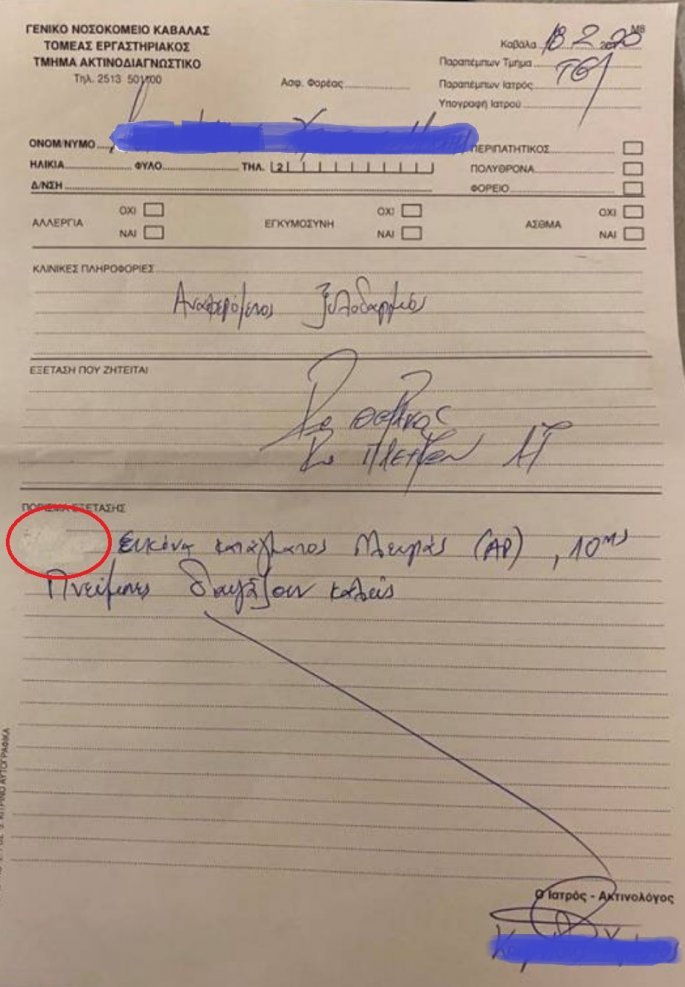 ΓΕΝΙΚΟ ΝΟΣΟΚΟΜΕΙΟ ΚΑΒΑΛΑΣ
ΤΟΜΕΑΣ ΕΡΓΑΣΤΗΡΙΑΚΟΣ
ΤΜΗΜΑ ΑΚΤΙΝΟΔΙΑΓΝΩΣΤΙΚΟ
Τηλ. 2513 501100
Ασφ. Φορέας
Καβάλα 18 2 2020
Παραπέμπων Τμήμα ΤΕΠ
Παραπέμπων Ιατρός
Υπογραφή Ιατρού
ΟΝΟΜ/ΝΥΜΟ
ΗΛΙΚΙΑ ΦΥΛΟ ΤΗΛ. 2
Δ/ΝΣΗ
ΠΕΡΙΠΑΤΗΤΙΚΟΣ
ΠΟΛΥΘΡΟΝΑ
ΦΟΡΕΙΟ
ΑΛΛΕΡΓΙΑ ΟΧΙ ΝΑΙ
ΕΓΚΥΜΟΣΥΝΗ ΟΧΙ ΝΑΙ
ΑΣΘΜΑ ΟΧΙ ΝΑΙ
ΚΛΙΝΙΚΕΣ ΠΛΗΡΟΦΟΡΙΕΣ
Αναφερόμενος ξυλοδαρμός
ΕΞΕΤΑΣΗ ΠΟΥ ΖΗΤΕΙΤΑΙ
Ro ΘΩΡΑΚΟΣ
Ro ΠΛΕΥΡΩΝ ΑΡ
ΠΟΡΙΣΜΑ ΕΞΕΤΑΣΗΣ
Εικόνα κατάγματος πλευράς (ΑΡ), 10ης
Πνεύμονες καλώς
Ο Ιατρός - Ακτινολόγος